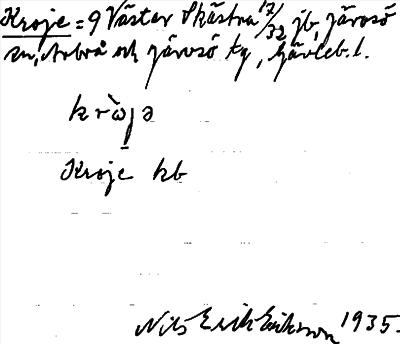 Kroje = 9 Väster Skästra 17/32 jb, Järvsö
sn, Arbrå och Järvsö tg, Gävleb. l.
kròja
Kroje kb
Nils Erik Eriksson 1935.